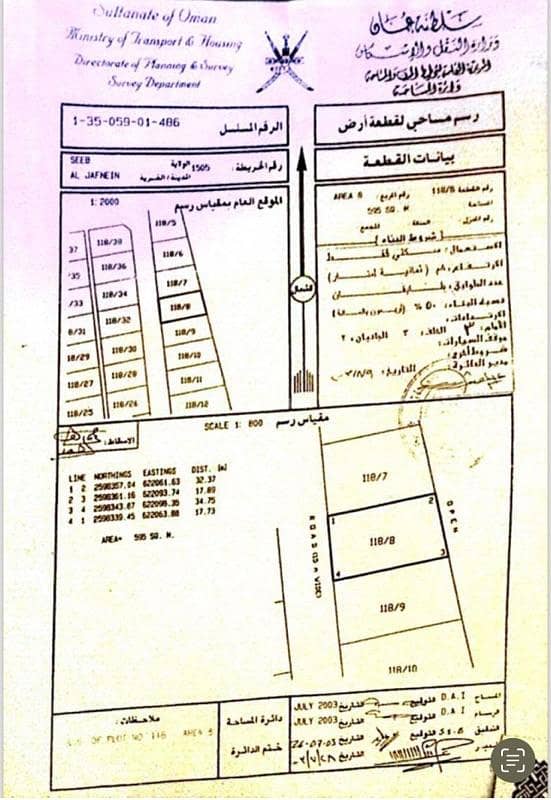 Sultanate of Oman
Ministry of Transport & Housing
Directorate of Planning & Survey
Survey Department
سلطنة عمان
وزارة النقل والإسكان
دائرة المساحة
1-35-059-01-486
الرقم المسلسل
SEEB
AL JAFNEIN
الولاية
1505
رقم الخريطة:
رسم مساحي لقطعة أرض
بيانات القطعة
1: 2000
الموقع العام بمقياس رسم
118/5
118/6
118/7
118/8
118/9
118/10
118/11
118/12
118/38
118/36
118/34
118/32
118/30
118/28
118/26
37
/35
/33
8/31
18/29
118/27
118/25
الشمال
رقم القطعة 118/8
رقم المربع: AREA 8
المساحة
595 SQ. M
( شروط البناء )
الاستعمال: سكني فقط
الارتفاع: ٨م (ثمانية أمتار)
عدد الطوابق: طابقان
نسبة البناء: ٥٠%
الارتدادات:
الأمام: ٣ الخلف: ٣ الجانبان: ٢
موقف السيارات:
شروط أخرى:
مدير الدائرة:
التاريخ:
SCALE 1: 800 مقياس رسم
الإسقاط:
LINE NORTHINGS EASTINGS DIST. (m)
1 2 2598357.04 622061.63 32.37
2 3 2598361.16 622093.74 17.89
3 4 2598343.87 622098.35 34.75
4 1 2598339.45 622063.88 17.73
AREA= 595 SQ. M.
118/7
1
2
118/8
3
4
118/9
118/10
OPEN
ملاحظات:
دائرة المساحة
ختم الدائرة
المساح D.A.I التوقيع التاريخ JULY 2003
الرسام D.A.I التوقيع التاريخ JULY 2003
التدقيق التوقيع التاريخ 26-07-03
التوقيع التاريخ